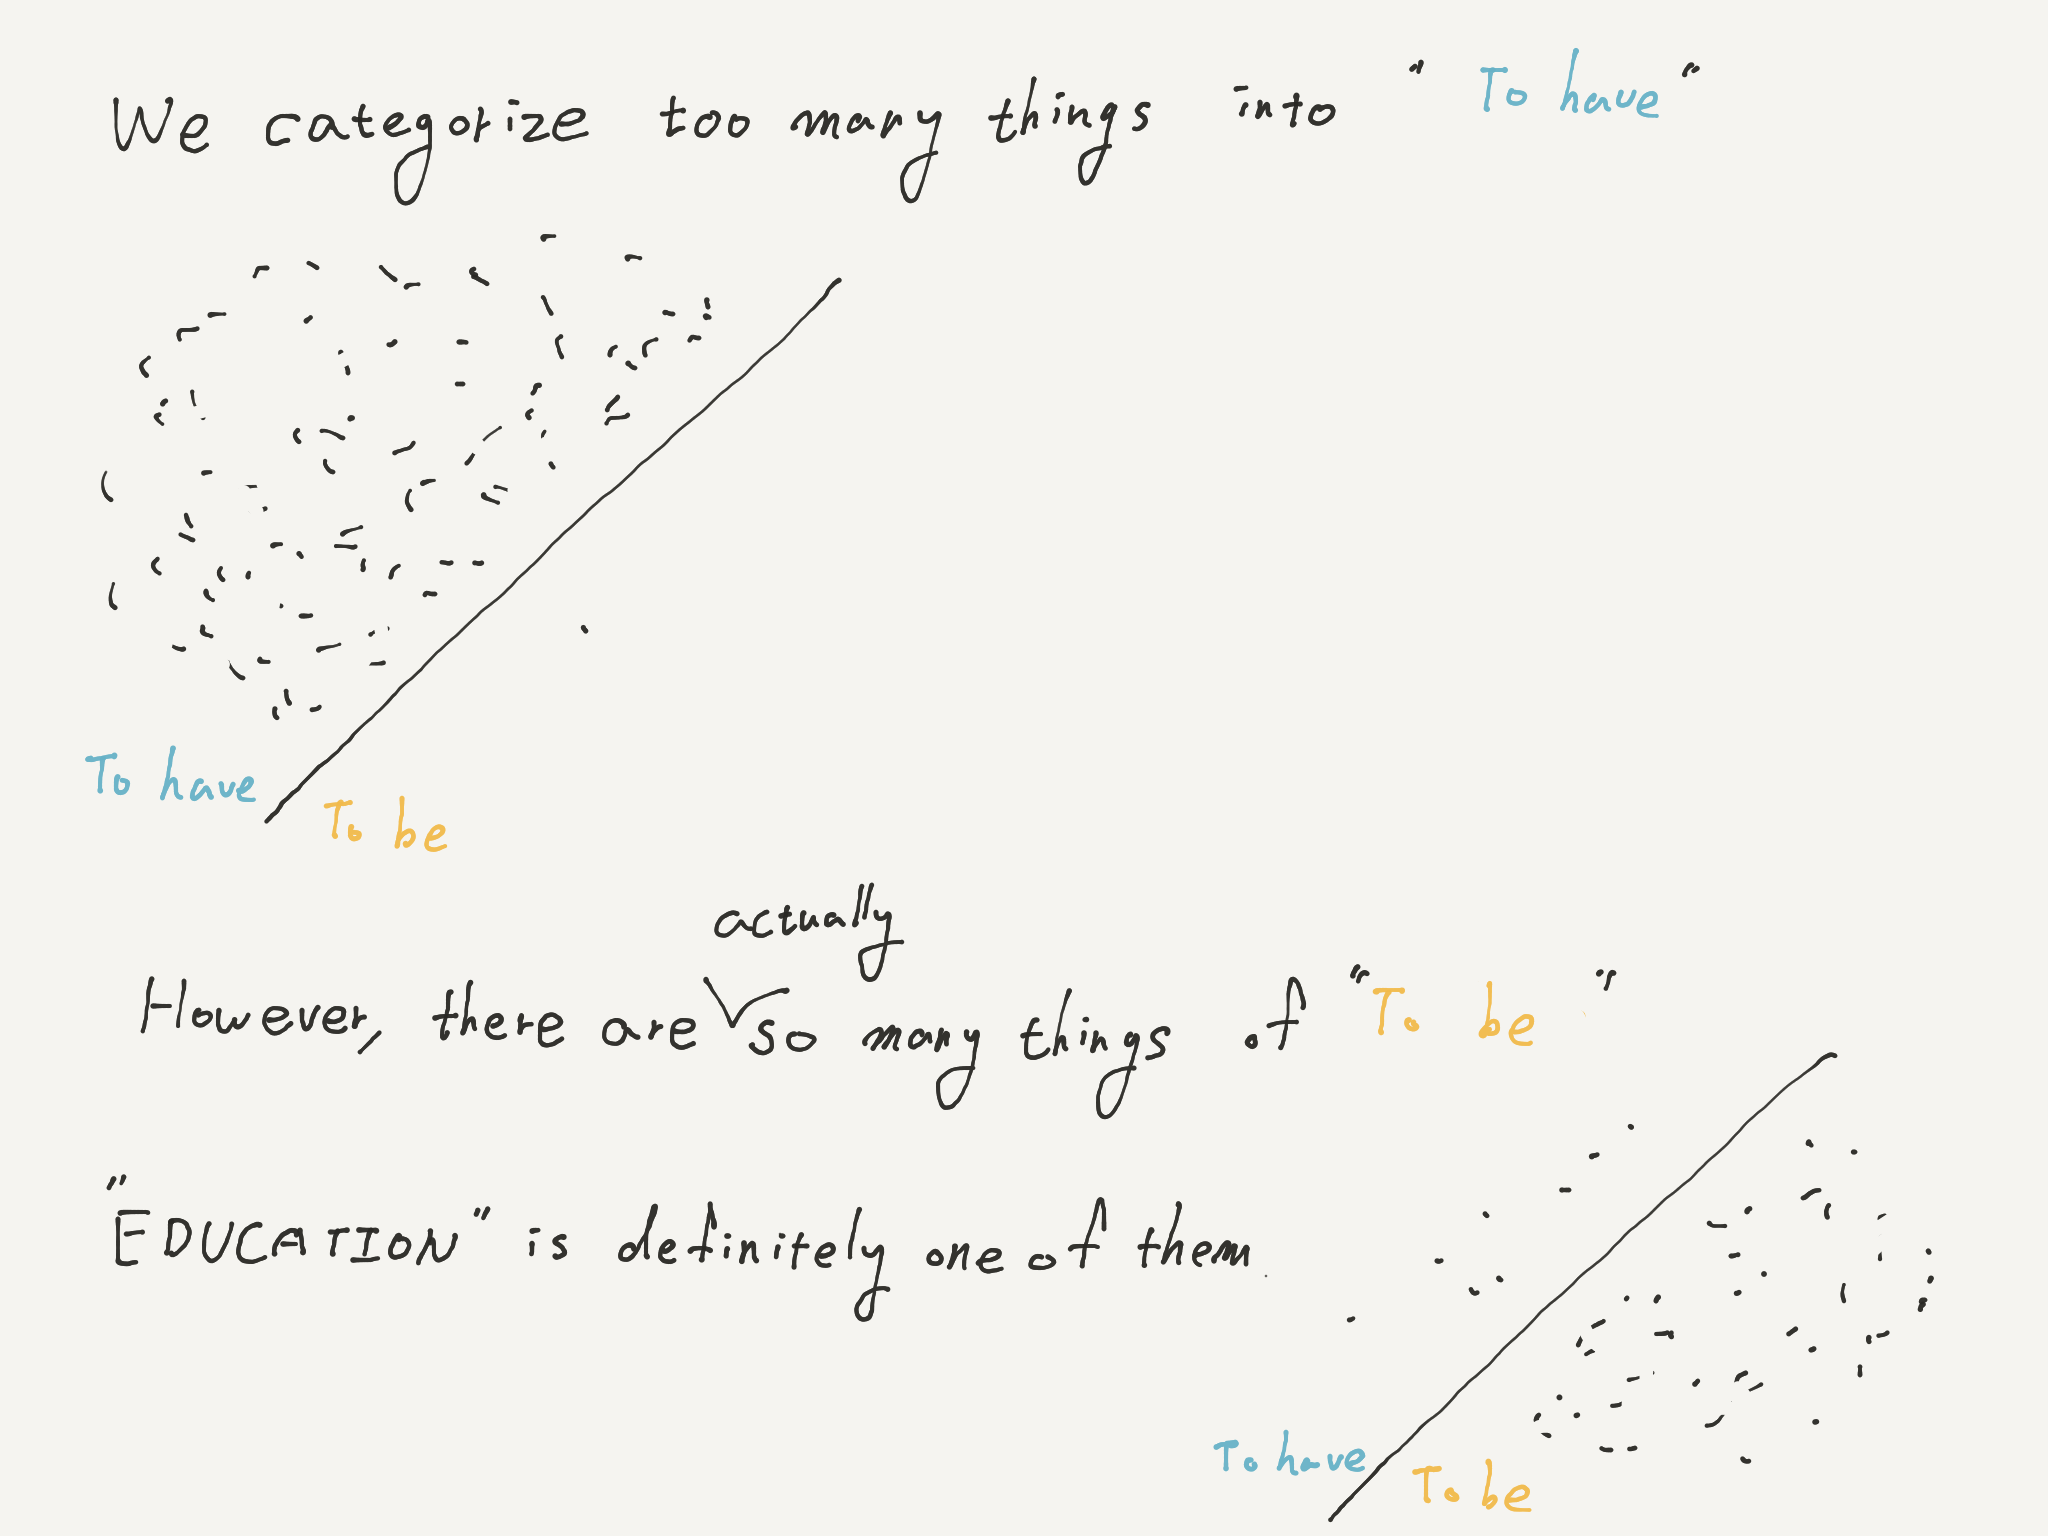 We categorize too many things into "To have"
To have
To be
actually
However, there are so many things of "To be"
"EDUCATION" is definitely one of them.
To have
To be